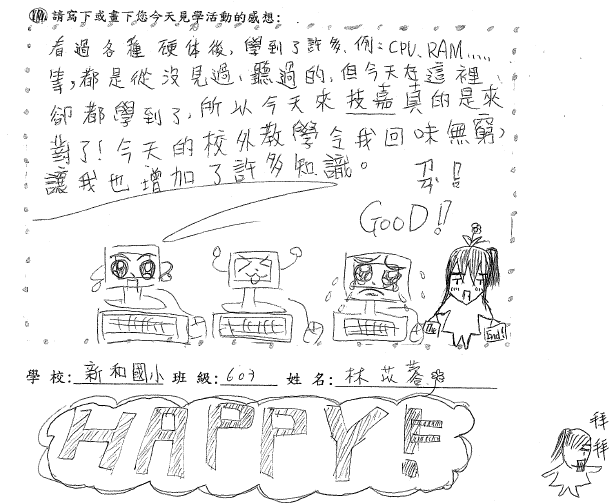 ⑩請寫下或畫下您今天見學活動的感想:
看過各種硬体後,學到了許多,例:CPU、RAM......
等,都是從沒見過、聽過的,但今天在這裡,
卻都學到了,所以今天來技嘉真的是來
對了!今天的校外教學令我回味無窮,
讓我也增加了許多知識。
GOOD!!
The
End!
學校:新和國小 班級:607 姓名:林苡蓉
HAPPY!
拜
拜